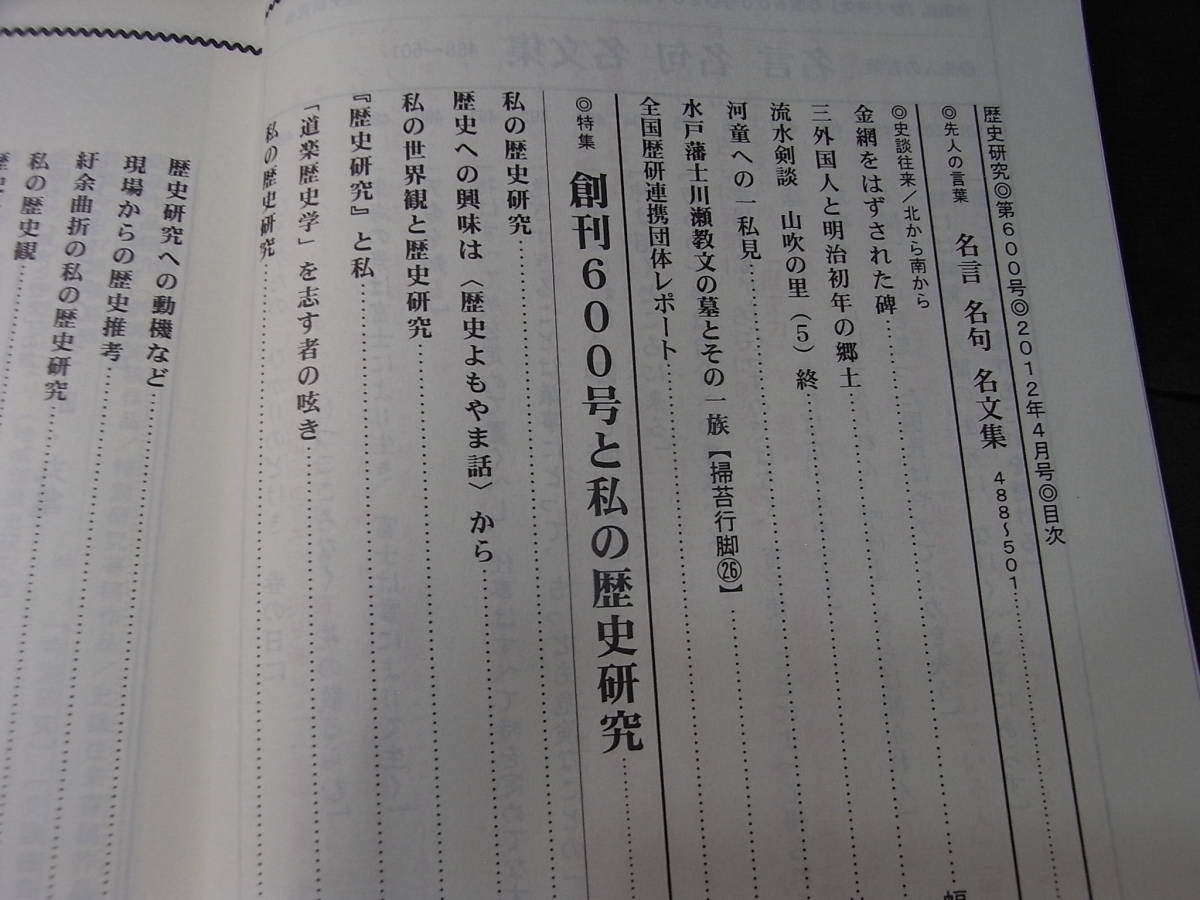 歴史研究◎第600号◎2012年4月号◎目次
◎先人の言葉 名言 名句 名文集 488〜501
◎史談往来／北から南から
金網をはずされた碑
三外国人と明治初年の郷土
流水剣談 山吹の里（5）終
河童への一私見
水戸藩士川瀬教文の墓とその一族【掃苔行脚㉖】
全国歴研連携団体レポート
◎特集 創刊600号と私の歴史研究
私の歴史研究
歴史への興味は〈歴史よもやま話〉から
私の世界観と歴史研究
『歴史研究』と私
「道楽歴史学」を志す者の呟き
私の歴史研究
歴史研究への動機など
現場からの歴史推考
紆余曲折の私の歴史研究
私の歴史観